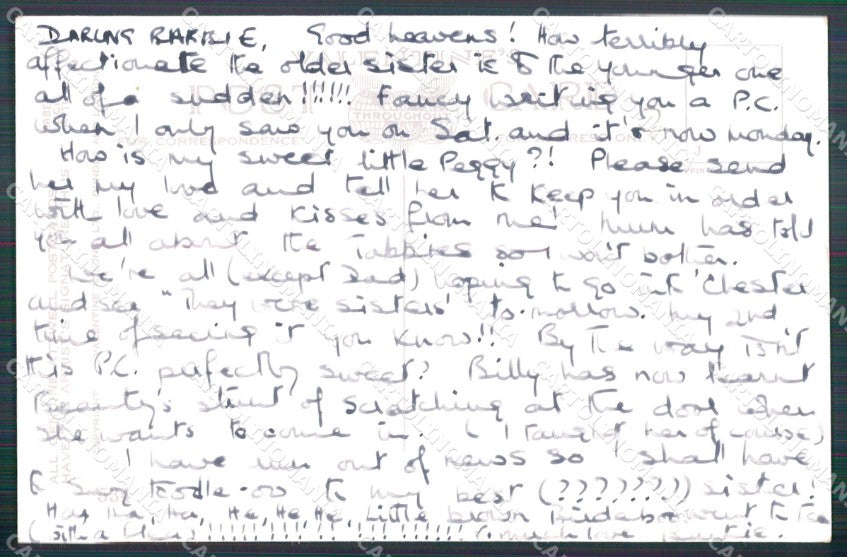 DARLING BARBIE, Good heavens! How terribly
affectionate the older sister is to the younger one
all of a sudden!!!!!! Fancy writing you a P.C.
when I only saw you on Sat. and it's now monday.
How is my sweet little Peggy?! Please send
her my love and tell her to keep you in order
with love and kisses from me! Mum has told
you all about the Tabbies so I won't bother.
We're all (except Dad) hoping to go into 'Chester
and see "They were sisters' to-morrow. my 2nd
time of seeing it you know!! By the way isn't
this P.C. perfectly sweet? Billy has now learnt
Beauty's stunt of scratching at the door when
she wants to come in. (I taught her of course)
I have run out of news so I shall have
to say toodle-oo to my best (???????) sister!
Ha, Ha, Ha, He, He, He, Little brown went to
much love
POST CARD
THROUGHOUT
CORRESPONDENCE
CARTOLINOMANIA